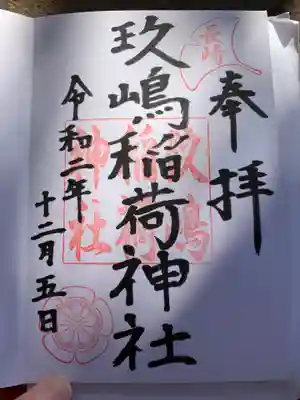 奉拝
玖嶋稲荷神社
玖嶋
稲荷
神社
令和二年
十二月五日